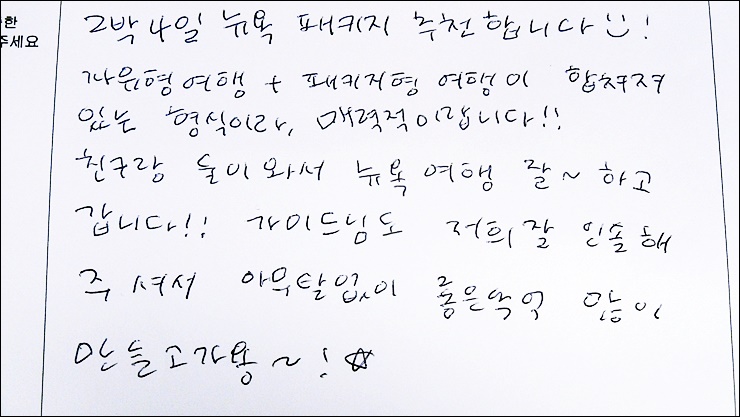 한
주세요
2박 4일 뉴욕 패키지 추천합니다 :)!
자유형여행 + 패키지형 여행이 합쳐져
있는 형식이라, 매력적이랍니다!!
친구랑 둘이와서 뉴욕여행 잘~ 하고
갑니다!! 가이드님도 저희잘 인솔해
주셔서 아무탈없이 좋은추억 많이
만들고가용~! ☆